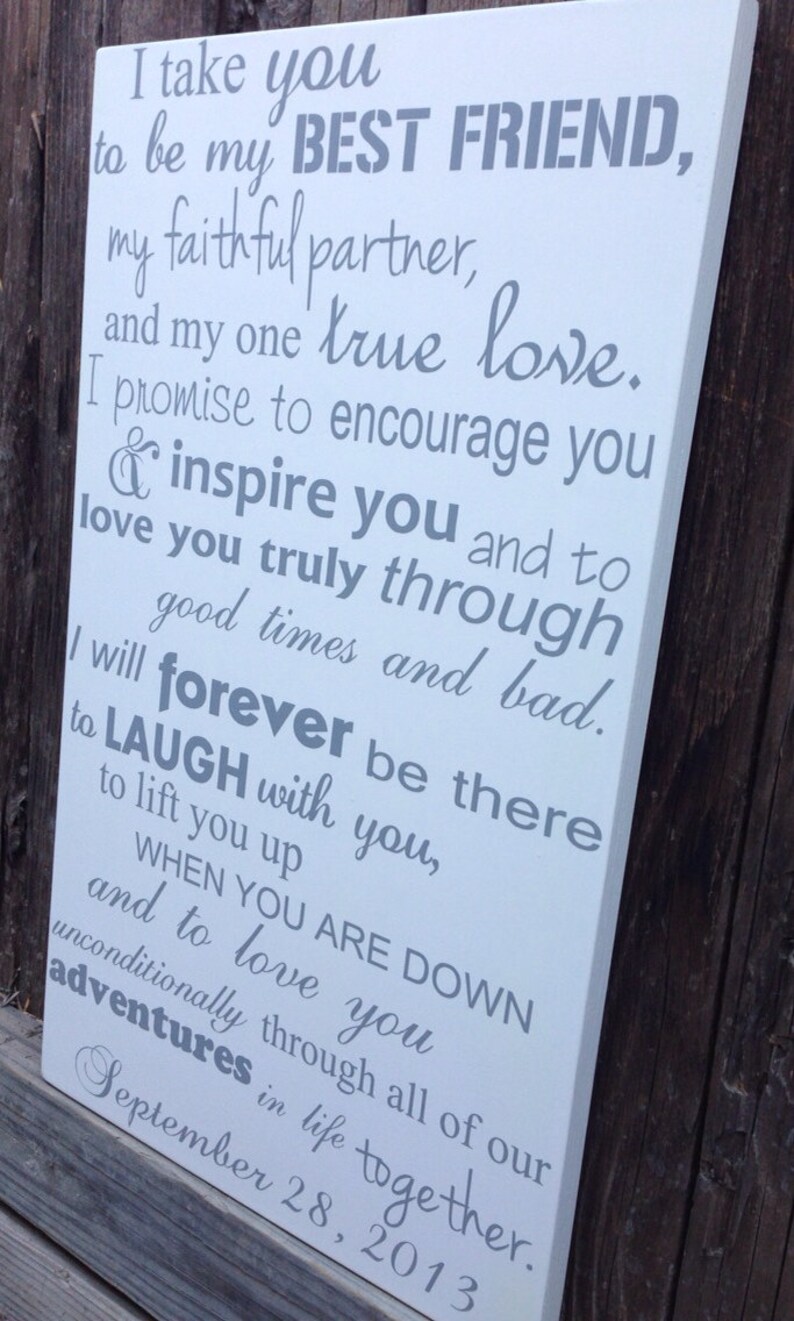 I take you
to be my BEST FRIEND,
my faithful partner,
and my one true love.
I promise to encourage you
& inspire you and to
love you truly through
good times and bad.
I will forever be there
to LAUGH with you,
to lift you up
WHEN YOU ARE DOWN
and to love you
unconditionally through all of our
adventures in life together.
September 28, 2013